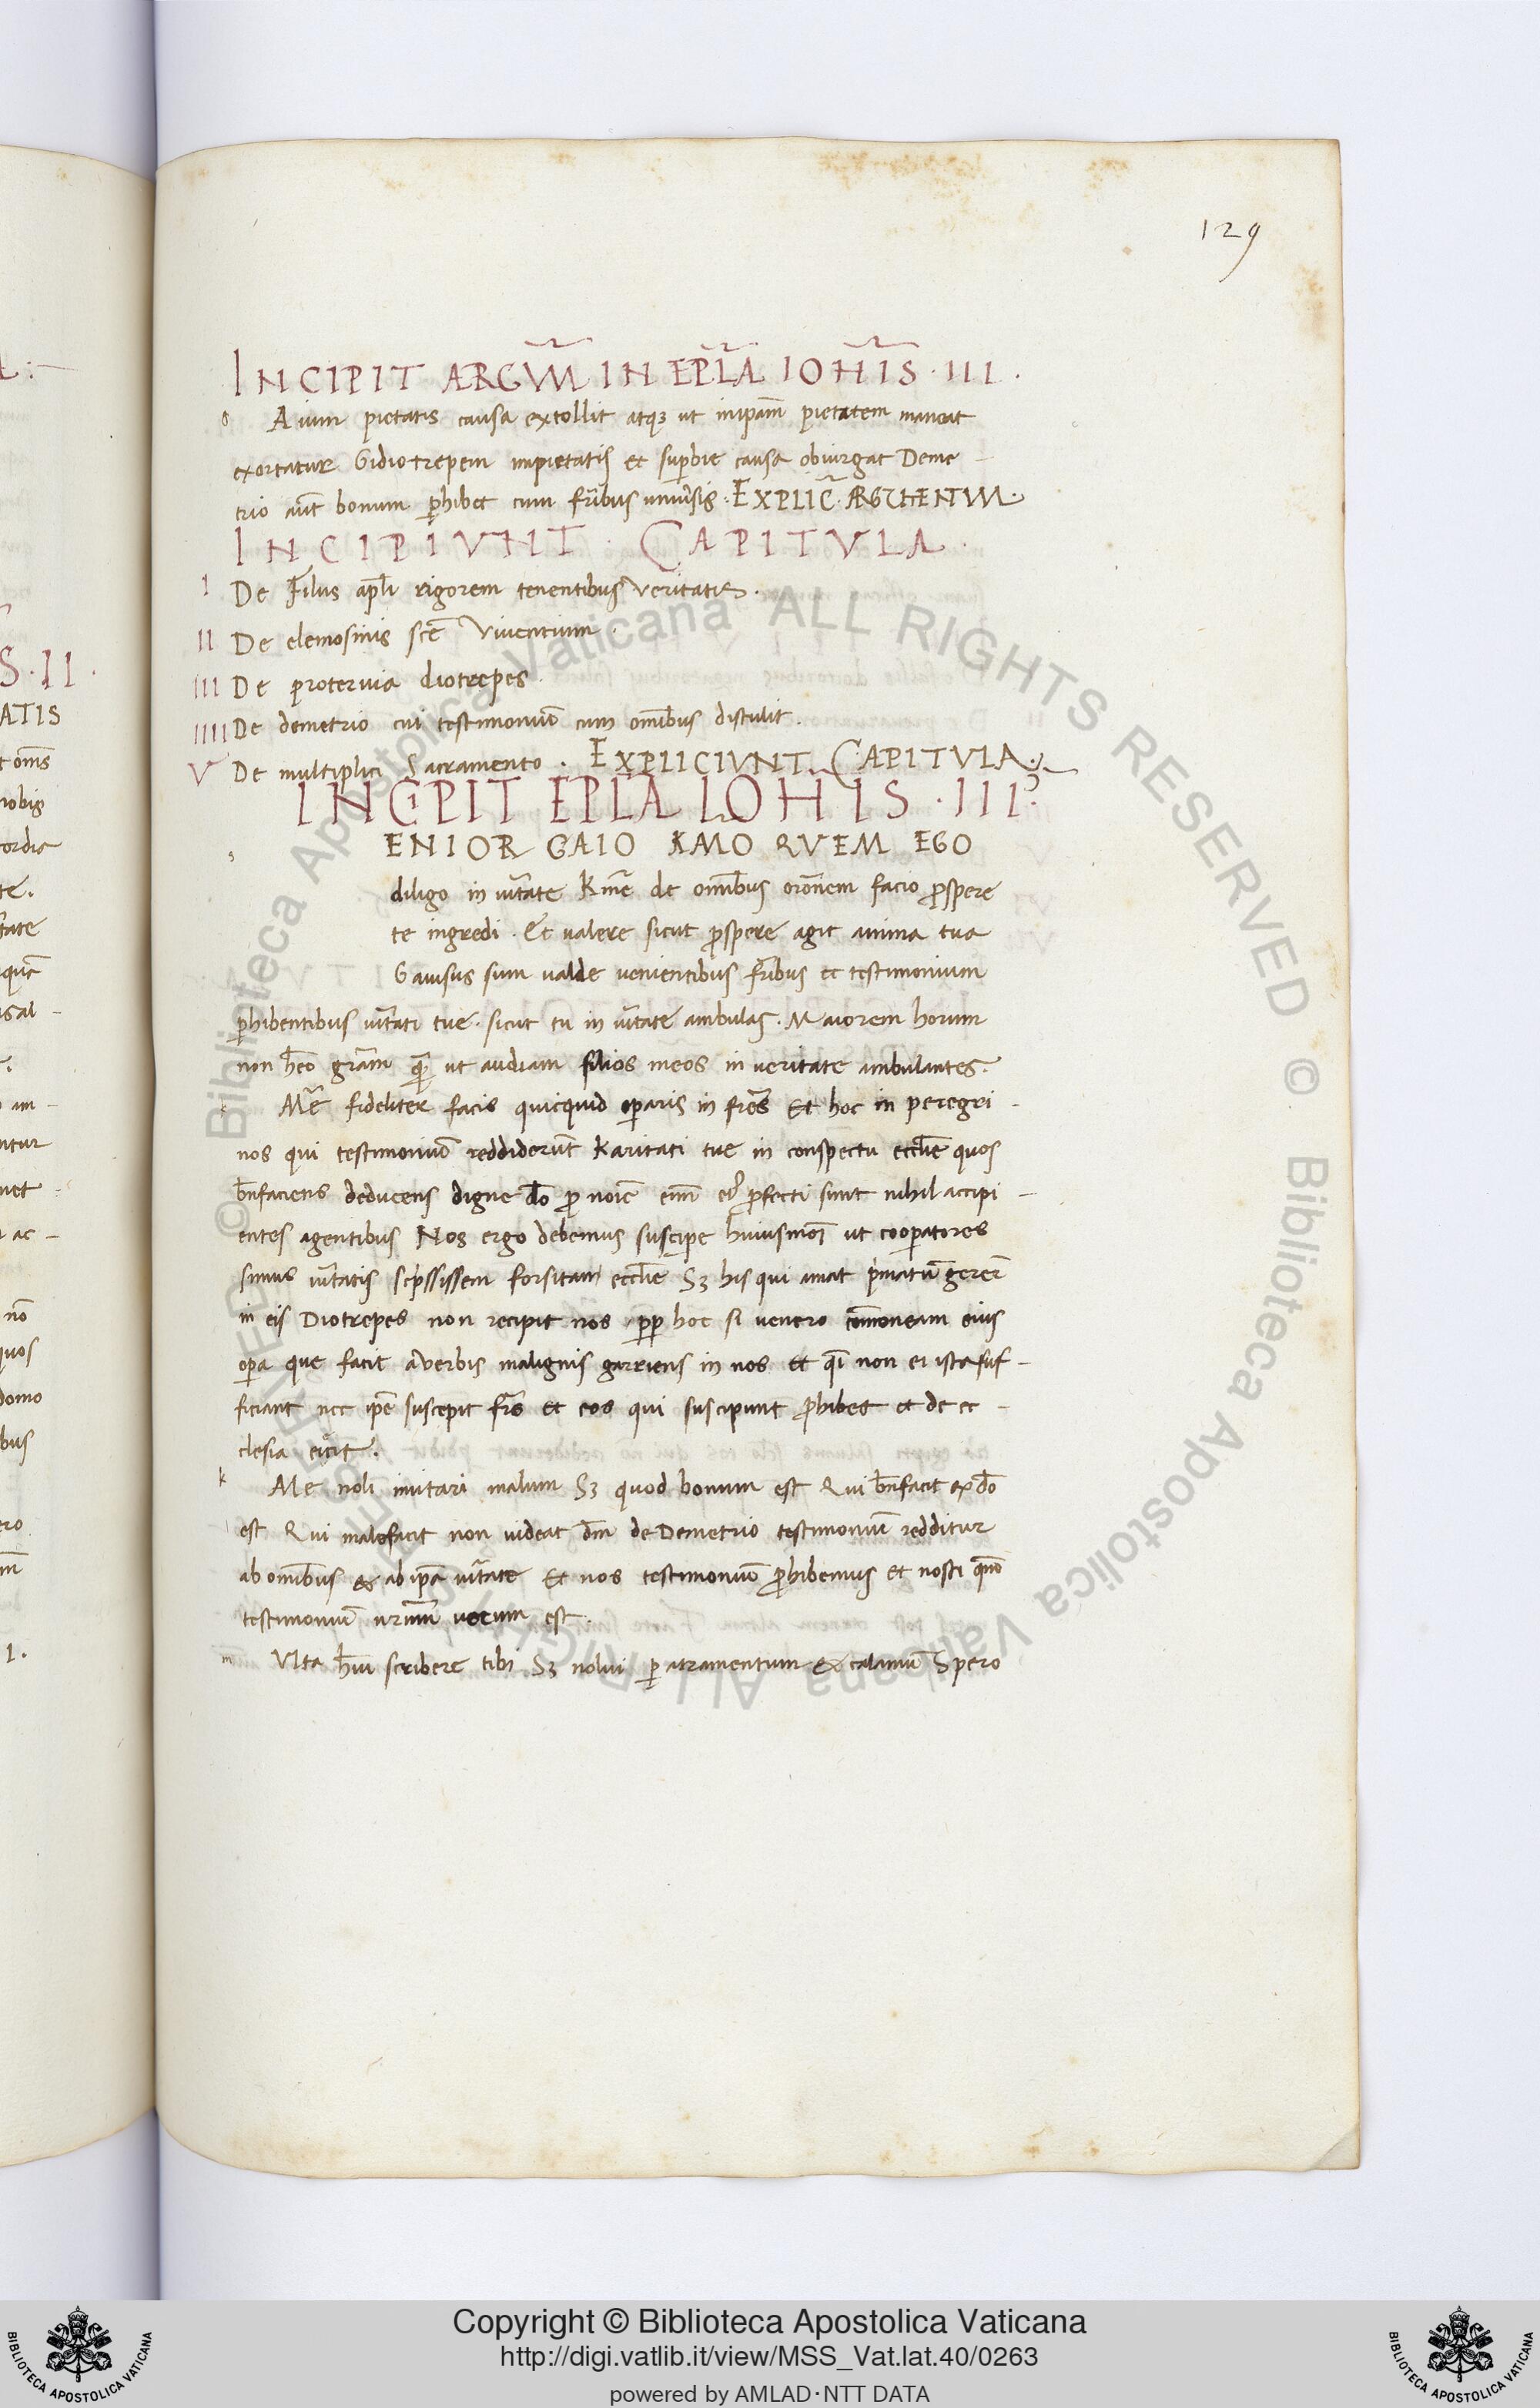 129
INCIPIT ARGUM̅ IN EPL̅A IOHI̅S · III ·
g Aium pietatis causa extollit atq3 ut inipam̅ pietatem maneat
exortatur Gidiotrepem impietatis et supbie causa obiurgat Deme-
trio aut̅ bonum phibet cum fribus univsis · EXPLIC̅ · ARGUMENTUM ·
INCIPIUNT · CAPITULA ·
I De Filiis apl̅i rigorem tenentibus veritatis ·
II De elemosinis sce̅ viventium ·
III De protervia diotrepes ·
IIII De demetrio cui testimoniu̅ cum omi̅bus distulit ·
V De multiplici Sacramento · EXPLICIUNT CAPITULA ·
INCIPIT EPL̅A IOHI̅S · III ·
s ENIOR GAIO KMO QUEM EGO
diligo in vi̅tate Kme̅ de omi̅bus oro̅nem facio pspere
te ingredi · Et valere sicut pspere agit anima tua
Gavisus sum valde venientibus fri̅bus et testimonium
phibentibus vi̅tati tue · sicut tu in vi̅tate ambulas · Maiorem horum
non he̅o gra̅m qua̅ ut audiam filios meos in veritate ambulantes ·
k Me̅ fideliter facis quicquid oparis in fre̅s Et hoc in peregri-
nos qui testimoniu̅ reddideru̅t Karitati tue in conspectu eccli̅e quos
bn̅faciens deducens digne do̅ p noi̅e eni̅m ei' pfecti sunt nihil accipi-
entes agentibus Nos ergo debemus suscipe huiusmoi̅ ut coopatores
simus vi̅tatis scpsissem forsitam eccli̅e S3 his qui amat pmatu̅ gerere̅
in eis Diotrepes non recipit nos pp hoc si venero co̅moneam eius
opa que facit averbis malignis garriens in nos et qi̅ non ei ista suf-
ficiant nec ipe̅ suscepit fr̅s et eos qui suscipiunt phibet et de ec-
clesia eicit ·
k Me noli imitari malum S3 quod bonum est Qui bn̅facit ex do̅
est Qui malefacit non videat dm̅ de Demetrio testimoniu̅ redditur
ab omi̅bus & ab ipa̅ vi̅tate Et nos testimoniu̅ phibemus et nosti qno̅
testimoniu̅ nrum̅ verum est ·
m Ulta h̅ui scribere tibi S3 nolui p atramentum & calamu̅ Spero
© Biblioteca Apostolica Vaticana ALL RIGHTS RESERVED © Biblioteca Apostolica Vaticana ALL RIGHTS RESERVED
Copyright © Biblioteca Apostolica Vaticana
http://digi.vatlib.it/view/MSS_Vat.lat.40/0263
powered by AMLAD·NTT DATA
BIBLIOTECA APOSTOLICA VATICANA
BIBLIOTECA APOSTOLICA VATICANA